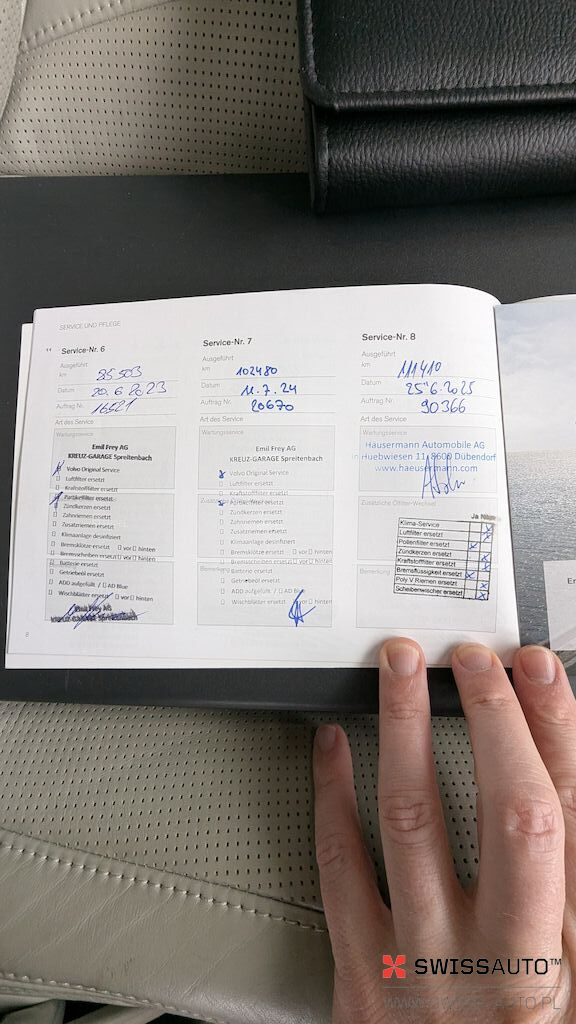 SERVICE UND PFLEGE
Service-Nr. 6
Ausgeführt
km 85 503
Datum 20.6.2023
Auftrag Nr. 16521
Art des Service
Wartungsservice
Emil Frey AG
KREUZ-GARAGE Spreitenbach
Volvo Original Service
Luftfilter ersetzt
Kraftstofffilter ersetzt
Partikelfilter ersetzt
Zündkerzen ersetzt
Zahnriemen ersetzt
Zusatzriemen ersetzt
Klimaanlage desinfiziert
Bremsklötze ersetzt vor hinten
Bremsscheiben ersetzt vor hinten
Batterie ersetzt
Getriebeöl ersetzt
ADD aufgefüllt / AD Blue
Wischblätter ersetzt vor hinten
Emil Frey AG
KREUZ-GARAGE Spreitenbach
8
Service-Nr. 7
Ausgeführt
km 102480
Datum 11.7.24
Auftrag Nr. 20670
Art des Service
Wartungsservice
Emil Frey AG
KREUZ-GARAGE Spreitenbach
Volvo Original Service
Luftfilter ersetzt
Kraftstofffilter ersetzt
Zündkerzen ersetzt
Zahnriemen ersetzt
Zusatzriemen ersetzt
Klimaanlage desinfiziert
Bremsklötze ersetzt vor hinten
Bremsscheiben ersetzt vor hinten
Batterie ersetzt
Getriebeöl ersetzt
ADD aufgefüllt / AD Blue
Wischblätter ersetzt vor hinten
Service-Nr. 8
Ausgeführt
km 111410
Datum 25.6.2025
Auftrag Nr. 90366
Art des Service
Wartungsservice
Häusermann Automobile AG
in Huebwiesen 11, 8600 Dübendorf
www.haeusermann.com
Zusätzliche Ölfilter-Wechsel
Ja Nein
Klima-Service
Luftfilter ersetzt
Pollenfilter ersetzt
Zündkerzen ersetzt
Kraftstofffilter ersetzt
Bremsflüssigkeit ersetzt
Poly V Riemen ersetzt
Scheibenwischer ersetzt
Bemerkung
SWISSAUTO™